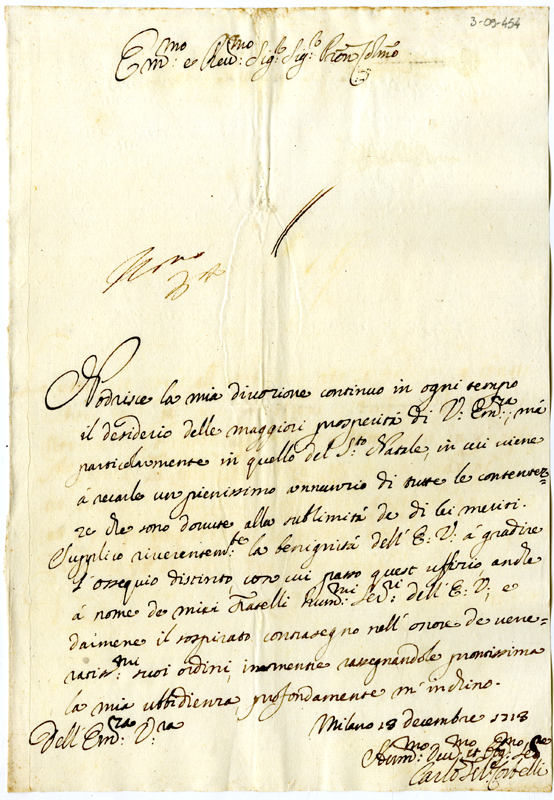 3-09-454
Em:mo e Rev:mo Sig:r Sig:r Pron Colmo
Nodrisce la mia divozione continuo in ogni tempo
il desiderio delle maggiori prosperità di V: Em:za, mà
particolarmente in quello del S:to Natale, in cui viene
à recarle un pienissimo annunzio di tutte le contentez=
ze che sono dovute alla sublimità de di lei meriti.
Supplico riverentem:te la benignità dell'E: V: à gradire
l'ossequio distinto con cui passo quest uffizio anche
à nome de miei Fratelli hum:mi Ser:ri dell'E: V:, e
darmene il sospirato contrasegno nell'onore de vene=
ratiss:mi suoi ordini, mentre rassegnandole prontissima
la mia ubbidienza profondamente m'inchino.
Dell'Em:za V:ra
Milano 13 decembre 1713
Hum:mo Dev:mo et Obl:mo Se:re
Carlo